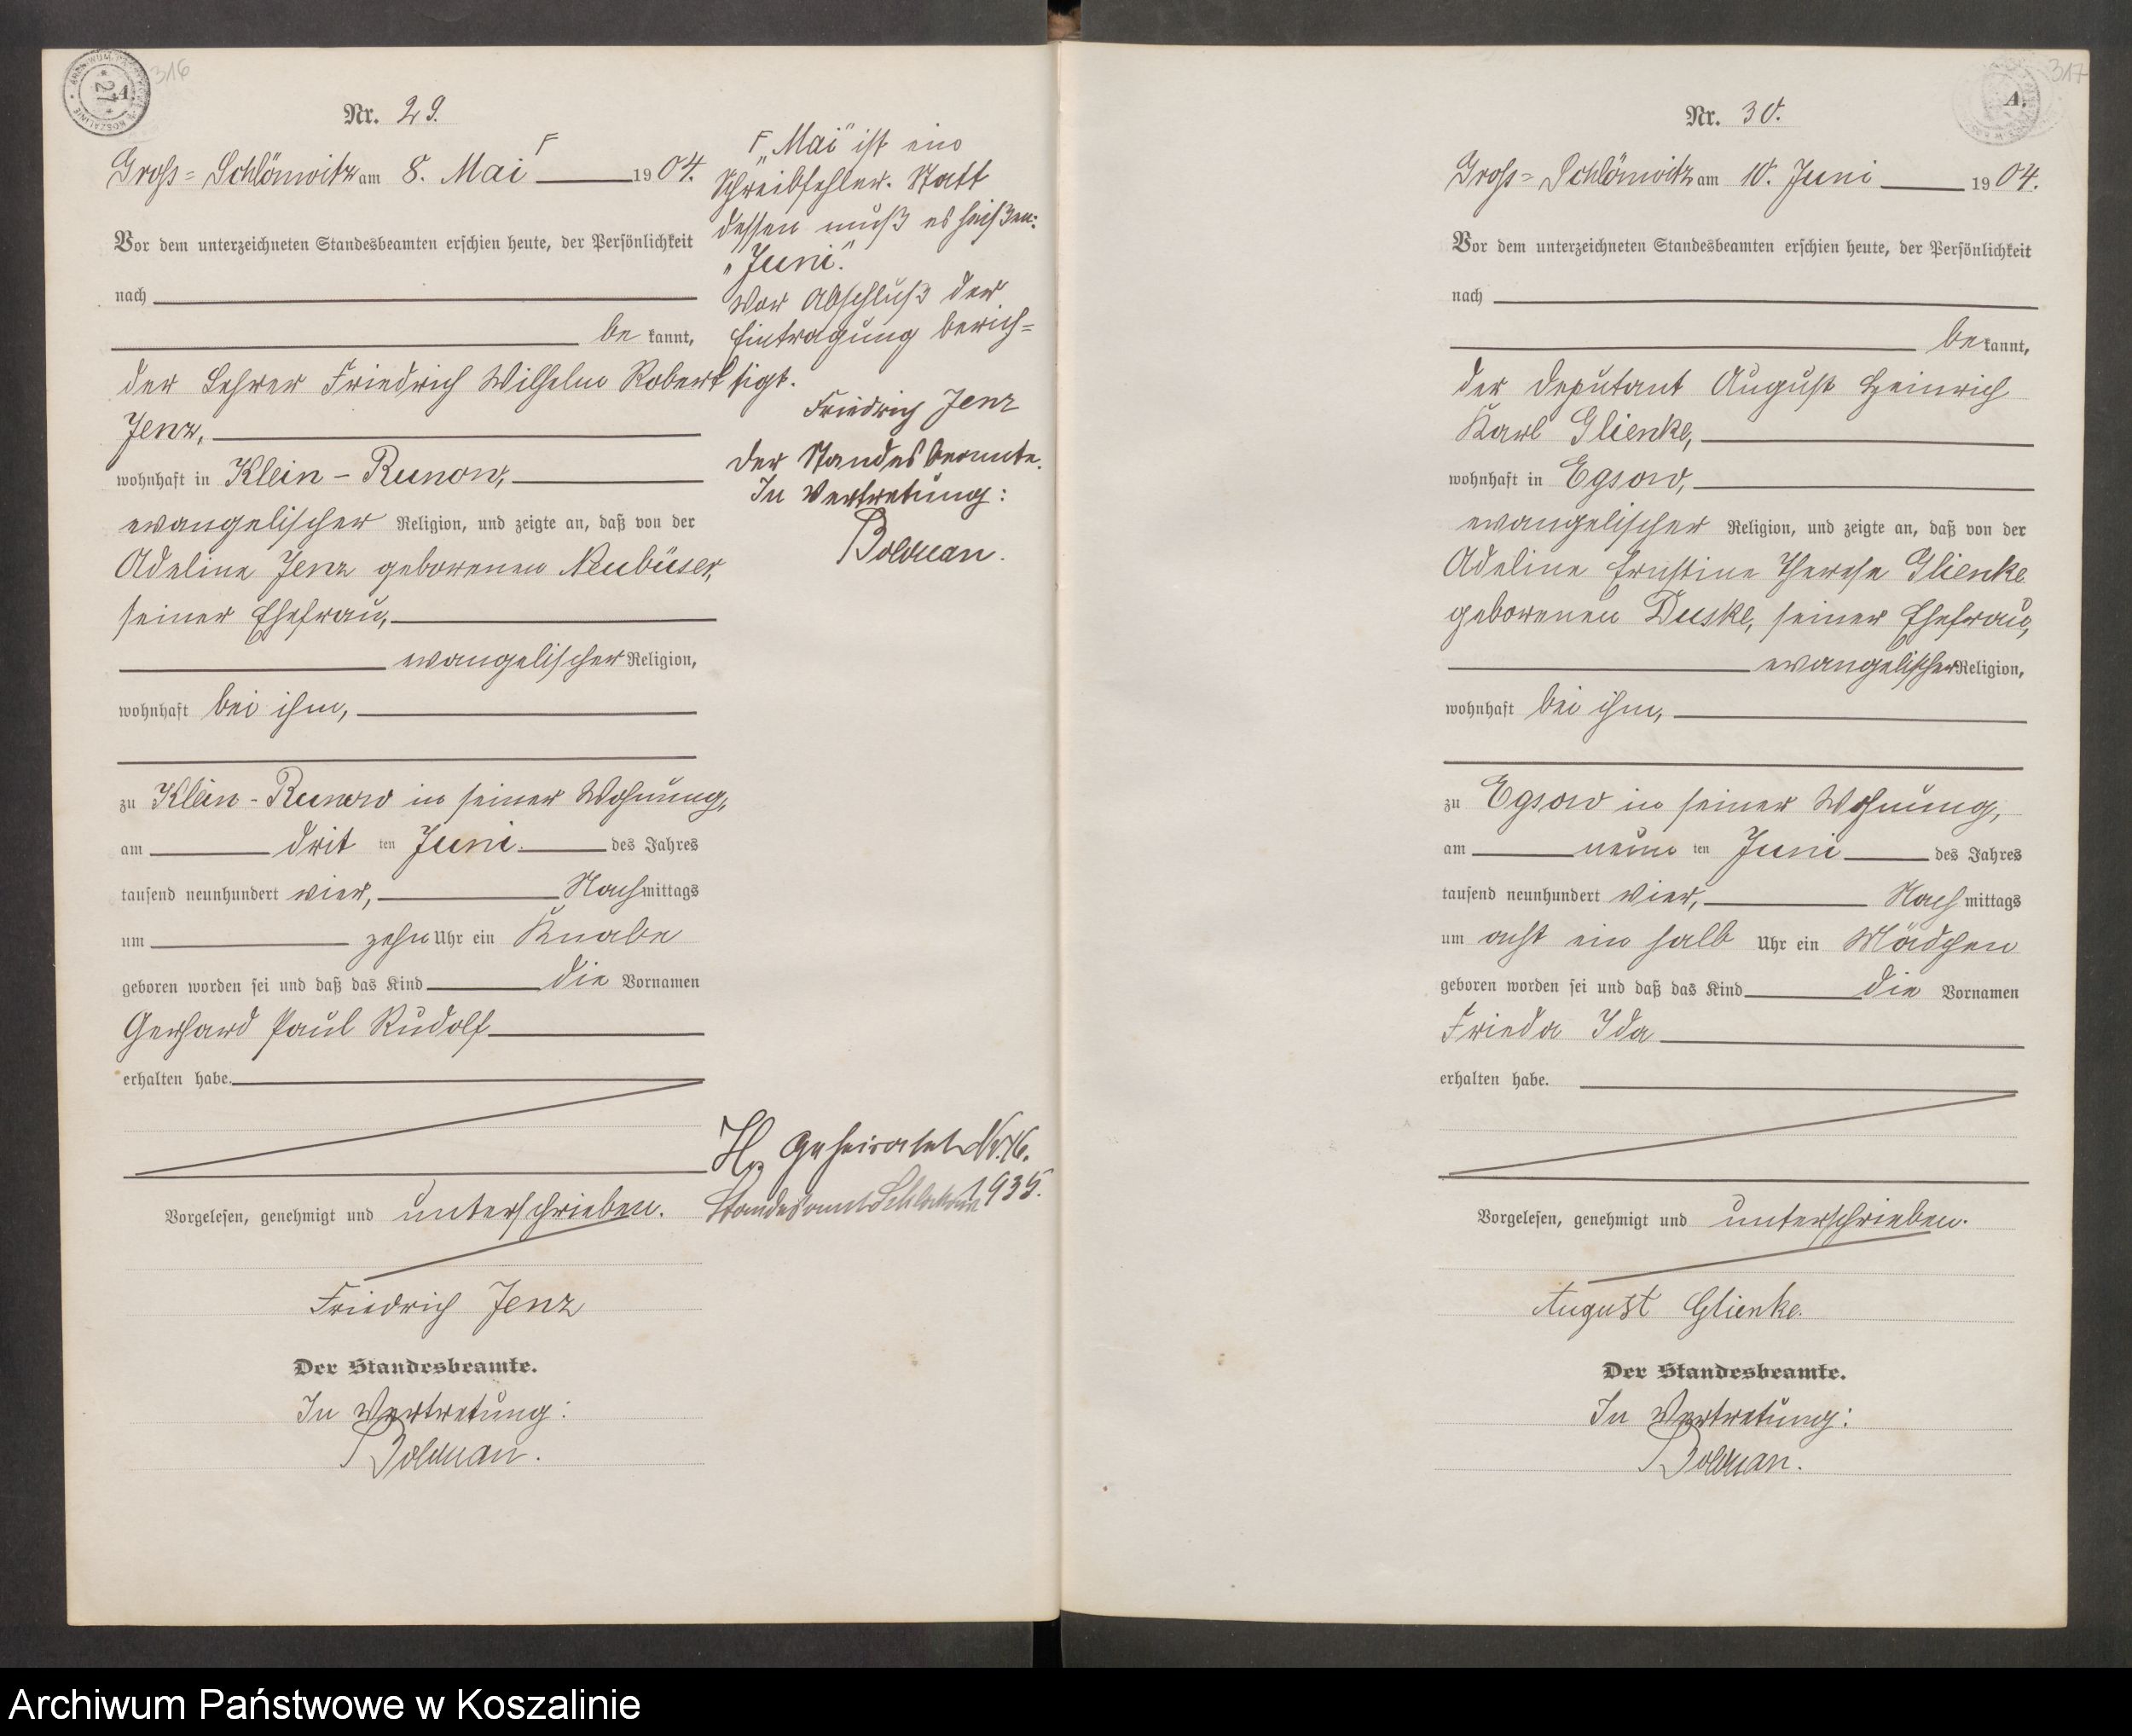 316
ARCHIWUM
KOSZALINIE
* 27 *
A.
Nr. 29.
Gross=Schlönwitz am 8. Mai F 1904.
Vor dem unterzeichneten Standesbeamten erschien heute, der Persönlichkeit
nach
be kannt,
der Lehrer Friedrich Wilhelm Robert
Jenz,
wohnhaft in Klein-Runow,
evangelischer Religion, und zeigte an, daß von der
Adeline Jenz geborenen Neubüser,
seiner Ehefrau,
evangelischer Religion,
wohnhaft bei ihm,
zu Klein-Runow in seiner Wohnung,
am drit ten Juni des Jahres
tausend neunhundert vier, Nachmittags
um zehn Uhr ein Knabe
geboren worden sei und daß das Kind die Vornamen
Gerhard Paul Rudolf
erhalten habe.
Vorgelesen, genehmigt und unterschrieben.
Friedrich Jenz
Der Standesbeamte.
In Vertretung:
Bolduan.
F „Mai" ist ein
Schreibfehler. Statt
dessen muß es heißen:
„Juni".
Vor Abschluß der
Eintragung berich=
tigt.
Friedrich Jenz
Der Standesbeamte.
In Vertretung:
Bolduan.
H. Geheiratet Nr. 16.
1935.
Standesamt
317
A.
Nr. 30.
Gross=Schlönwitz am 10. Juni 1904.
Vor dem unterzeichneten Standesbeamten erschien heute, der Persönlichkeit
nach
be kannt,
der Deputant August Heinrich
Karl Glienke,
wohnhaft in Egsow,
evangelischer Religion, und zeigte an, daß von der
Adeline Ernstine Therese Glienke
geborenen Duske, seiner Ehefrau,
evangelischer Religion,
wohnhaft bei ihm,
zu Egsow in seiner Wohnung,
am neun ten Juni des Jahres
tausend neunhundert vier, Nachmittags
um acht ein halb Uhr ein Mädchen
geboren worden sei und daß das Kind die Vornamen
Frieda Ida
erhalten habe.
Vorgelesen, genehmigt und unterschrieben.
August Glienke.
Der Standesbeamte.
In Vertretung:
Bolduan.
Archiwum Państwowe w Koszalinie